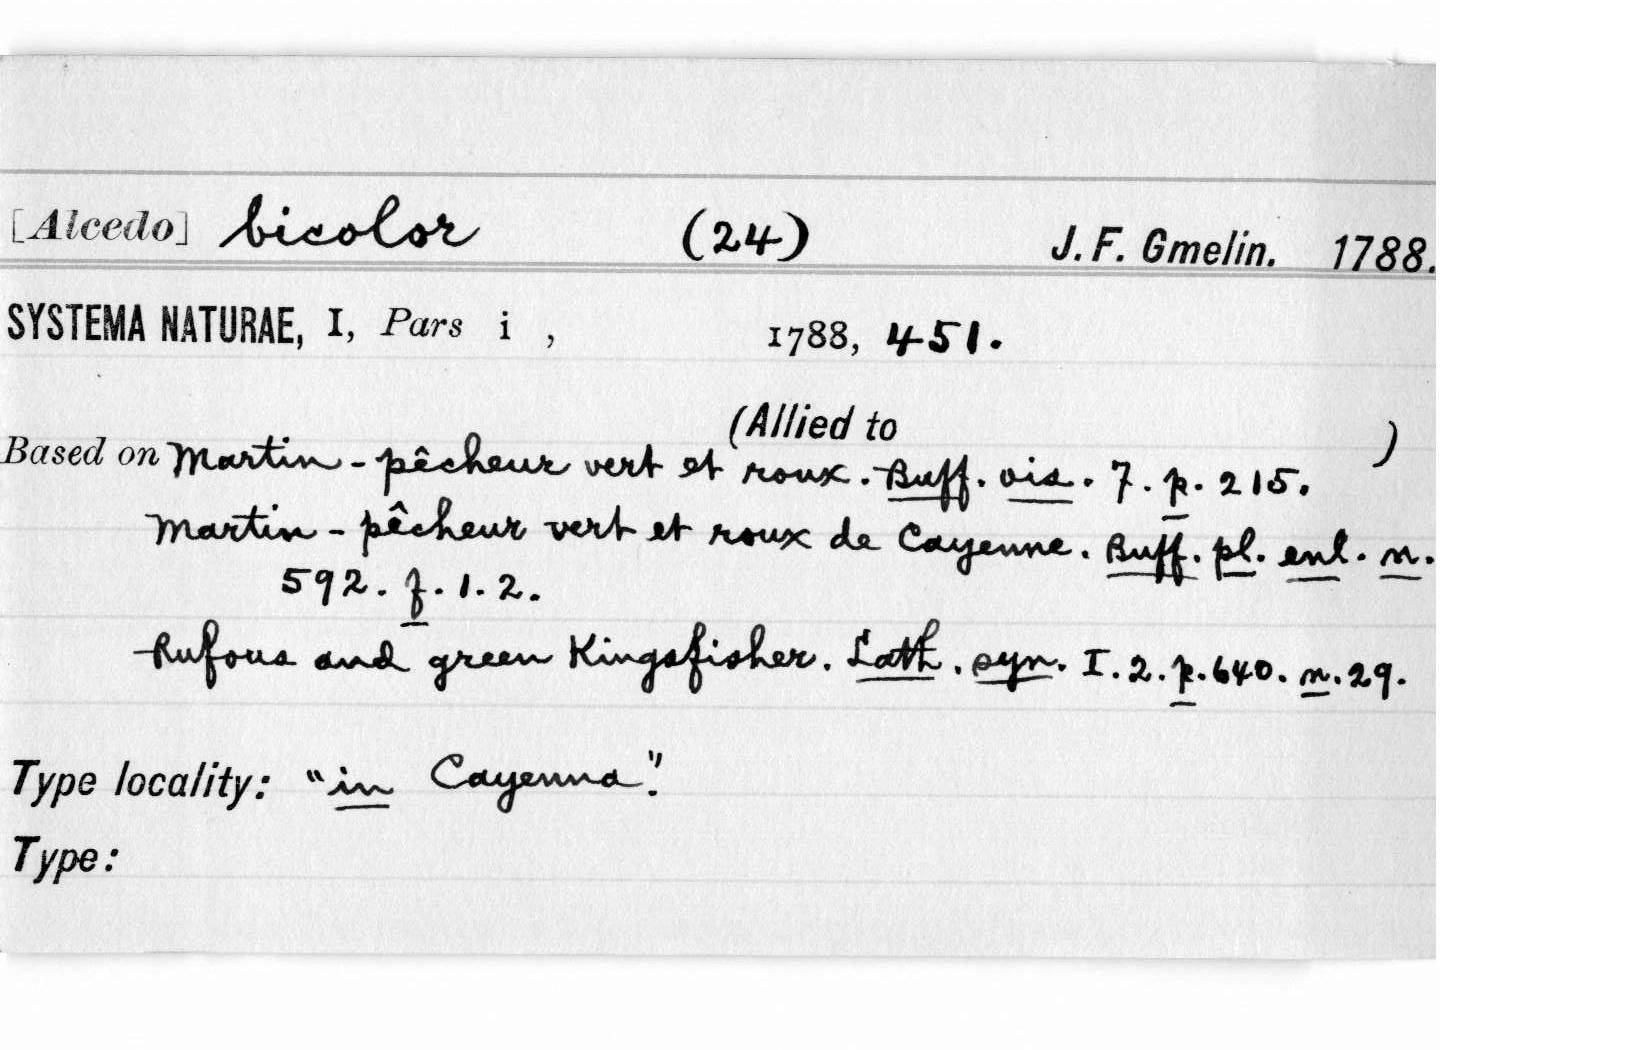 [Alcedo] bicolor (24) J. F. Gmelin. 1788.
SYSTEMA NATURAE, I, Pars i , 1788, 451.
(Allied to )
Based on Martin-pêcheur vert et roux. Buff. ois. 7. p. 215.
Martin-pêcheur vert et roux de Cayenne. Buff. pl. enl. n.
592. f. 1. 2.
Rufous and green Kingsfisher. Lath. syn. I. 2. p. 640. n. 29.
Type locality: "in Cayenna".
Type: